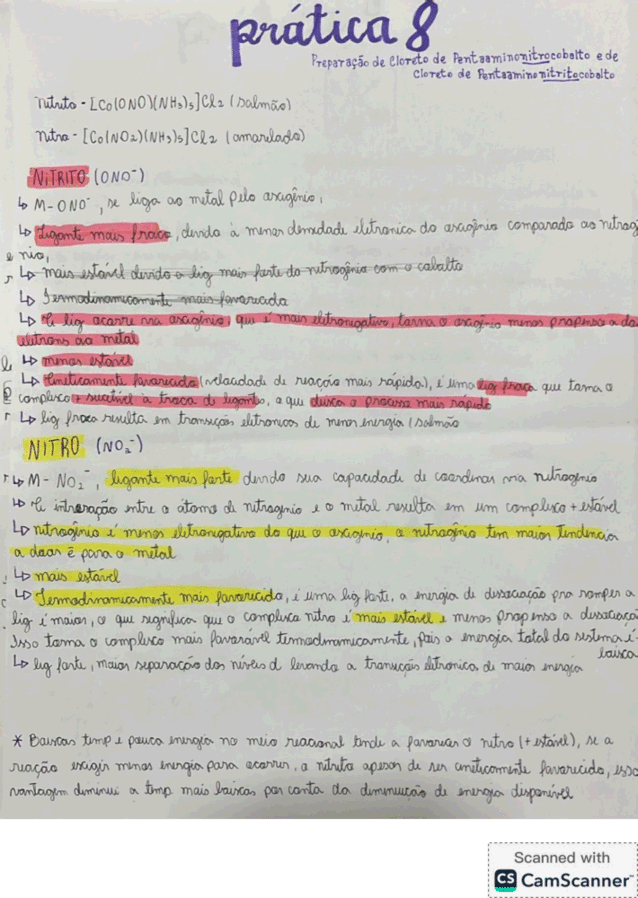 prática 8
Preparação de Cloreto de Pentaaminonitrocobalto e de
Cloreto de Pentaaminonitritocobalto
nitrito - [Co(ONO)(NH3)5]Cl2 (salmão)
nitro - [Co(NO2)(NH3)5]Cl2 (amarelado)
NITRITO (ONO⁻)
↳ M-ONO⁻, se liga ao metal pelo oxigênio,
↳ Ligante mais fraco, devido à menor densidade eletronica do oxigênio comparado ao nitrog
ênio,
↳ mais estável devido a lig mais forte do nitrogênio com o cobalto
↳ Termodinamicamente mais favorecida
↳ A lig ocorre via oxigênio, que é mais eletronegativo, torna o oxigênio menos propenso a doar
elétrons ao metal
↳ menos estável
↳ Cineticamente favorecido (velocidade de reação mais rápida), é uma lig fraca que torna o
complexo + suscetível à troca de ligante, o que deixa o processo mais rápido
↳ lig fraca resulta em transições eletronicas de menor energia (salmão
NITRO (NO2⁻)
↳ M-NO2⁻, ligante mais forte devido sua capacidade de coordenar via nitrogênio
↳ A interação entre o átomo de nitrogênio e o metal resulta em um complexo + estável
↳ nitrogênio é menos eletronegativo do que o oxigênio, o nitrogênio tem maior tendencia
a doar ē para o metal
↳ mais estável
↳ Termodinamicamente mais favorecido, é uma lig forte, a energia de dissociação pra romper a
lig é maior, o que significa que o complexo nitro é mais estável e menos propenso a dissociação
Isso torna o complexo mais favorável termodinamicamente, pois a energia total do sistema é
baixa
↳ lig forte, maior separação dos níveis d levando a transição eletronica de maior energia
* Baixas temp e pouca energia no meio reacional tende a favorecer o nitro (+ estável), se a
reação exigir menos energia para ocorrer, o nitrito apesar de ser cineticamente favorecido, essa
vantagem diminui a temp mais baixas por conta da diminuição de energia disponível
Scanned with
CS CamScanner